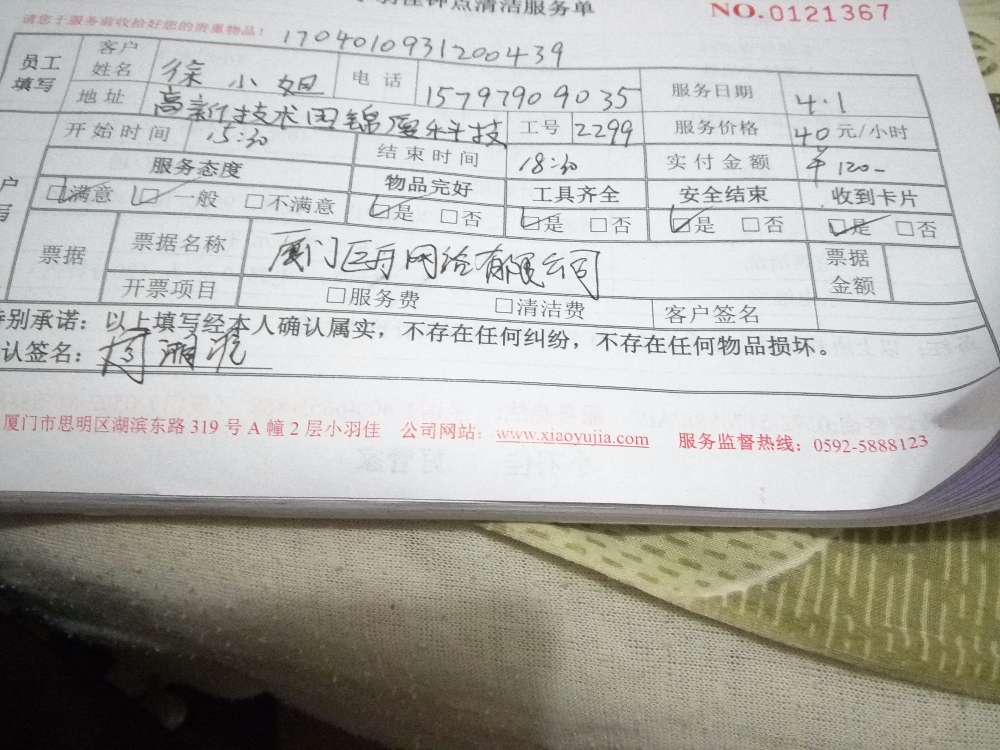 羽佳钟点清洁服务单
NO.0121367
请您于服务前收拾好您的贵重物品！ 1704010931200439
员工填写 客户姓名 徐小姐 电话 15797909035 服务日期 4.1
地址 高新技术园锦厦科技 工号 2299 服务价格 40元/小时
开始时间 15:30 结束时间 18:30 实付金额 ¥120-
服务态度 物品完好 工具齐全 安全结束 收到卡片
☑满意 ☑一般 □不满意 ☑是 □否 ☑是 □否 ☑是 □否 ☑是 □否
票据 票据名称 厦门巨月网络有限公司 票据金额
开票项目 □服务费 □清洁费 客户签名
特别承诺：以上填写经本人确认属实，不存在任何纠纷，不存在任何物品损坏。
认签名：
厦门市思明区湖滨东路 319 号 A 幢 2 层小羽佳 公司网站：www.xiaoyujia.com 服务监督热线：0592-5888123